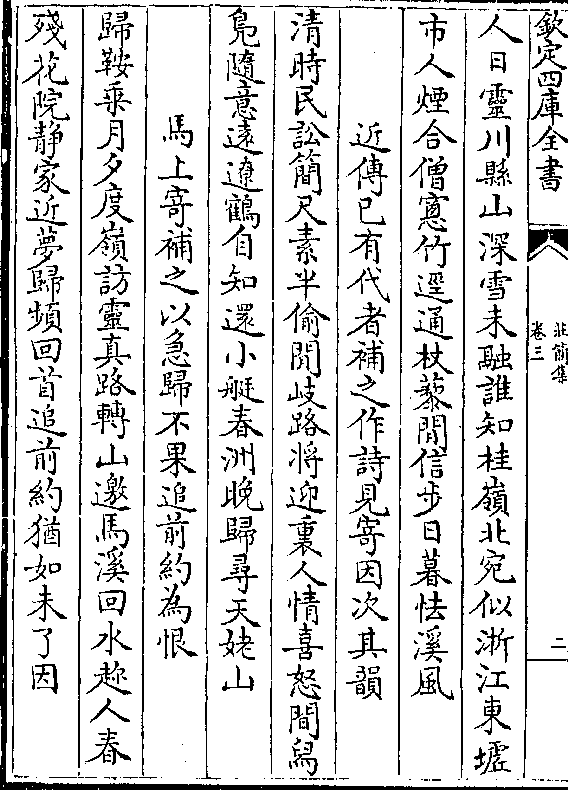 欽定四庫全書
北窗集
卷三
二
人日靈川縣山深雪未融誰知桂嶺北宛似浙江東墟
市人煙合僧窻竹逕通杖藜閒信步日暮怯溪風
近傳已有代者補之作詩見寄因次其韻
清時民訟簡尺素半偷閒歧路將迎裏人情喜怒間舄
鳧隨意遠遼鶴自知還小艇春洲晚歸尋天姥山
馬上寄補之以急歸不果追前約為恨
歸鞍乗月夕度嶺訪靈真路轉山邀馬溪回水趂人春
殘花院静家近夢歸頻回首追前約猶如未了因